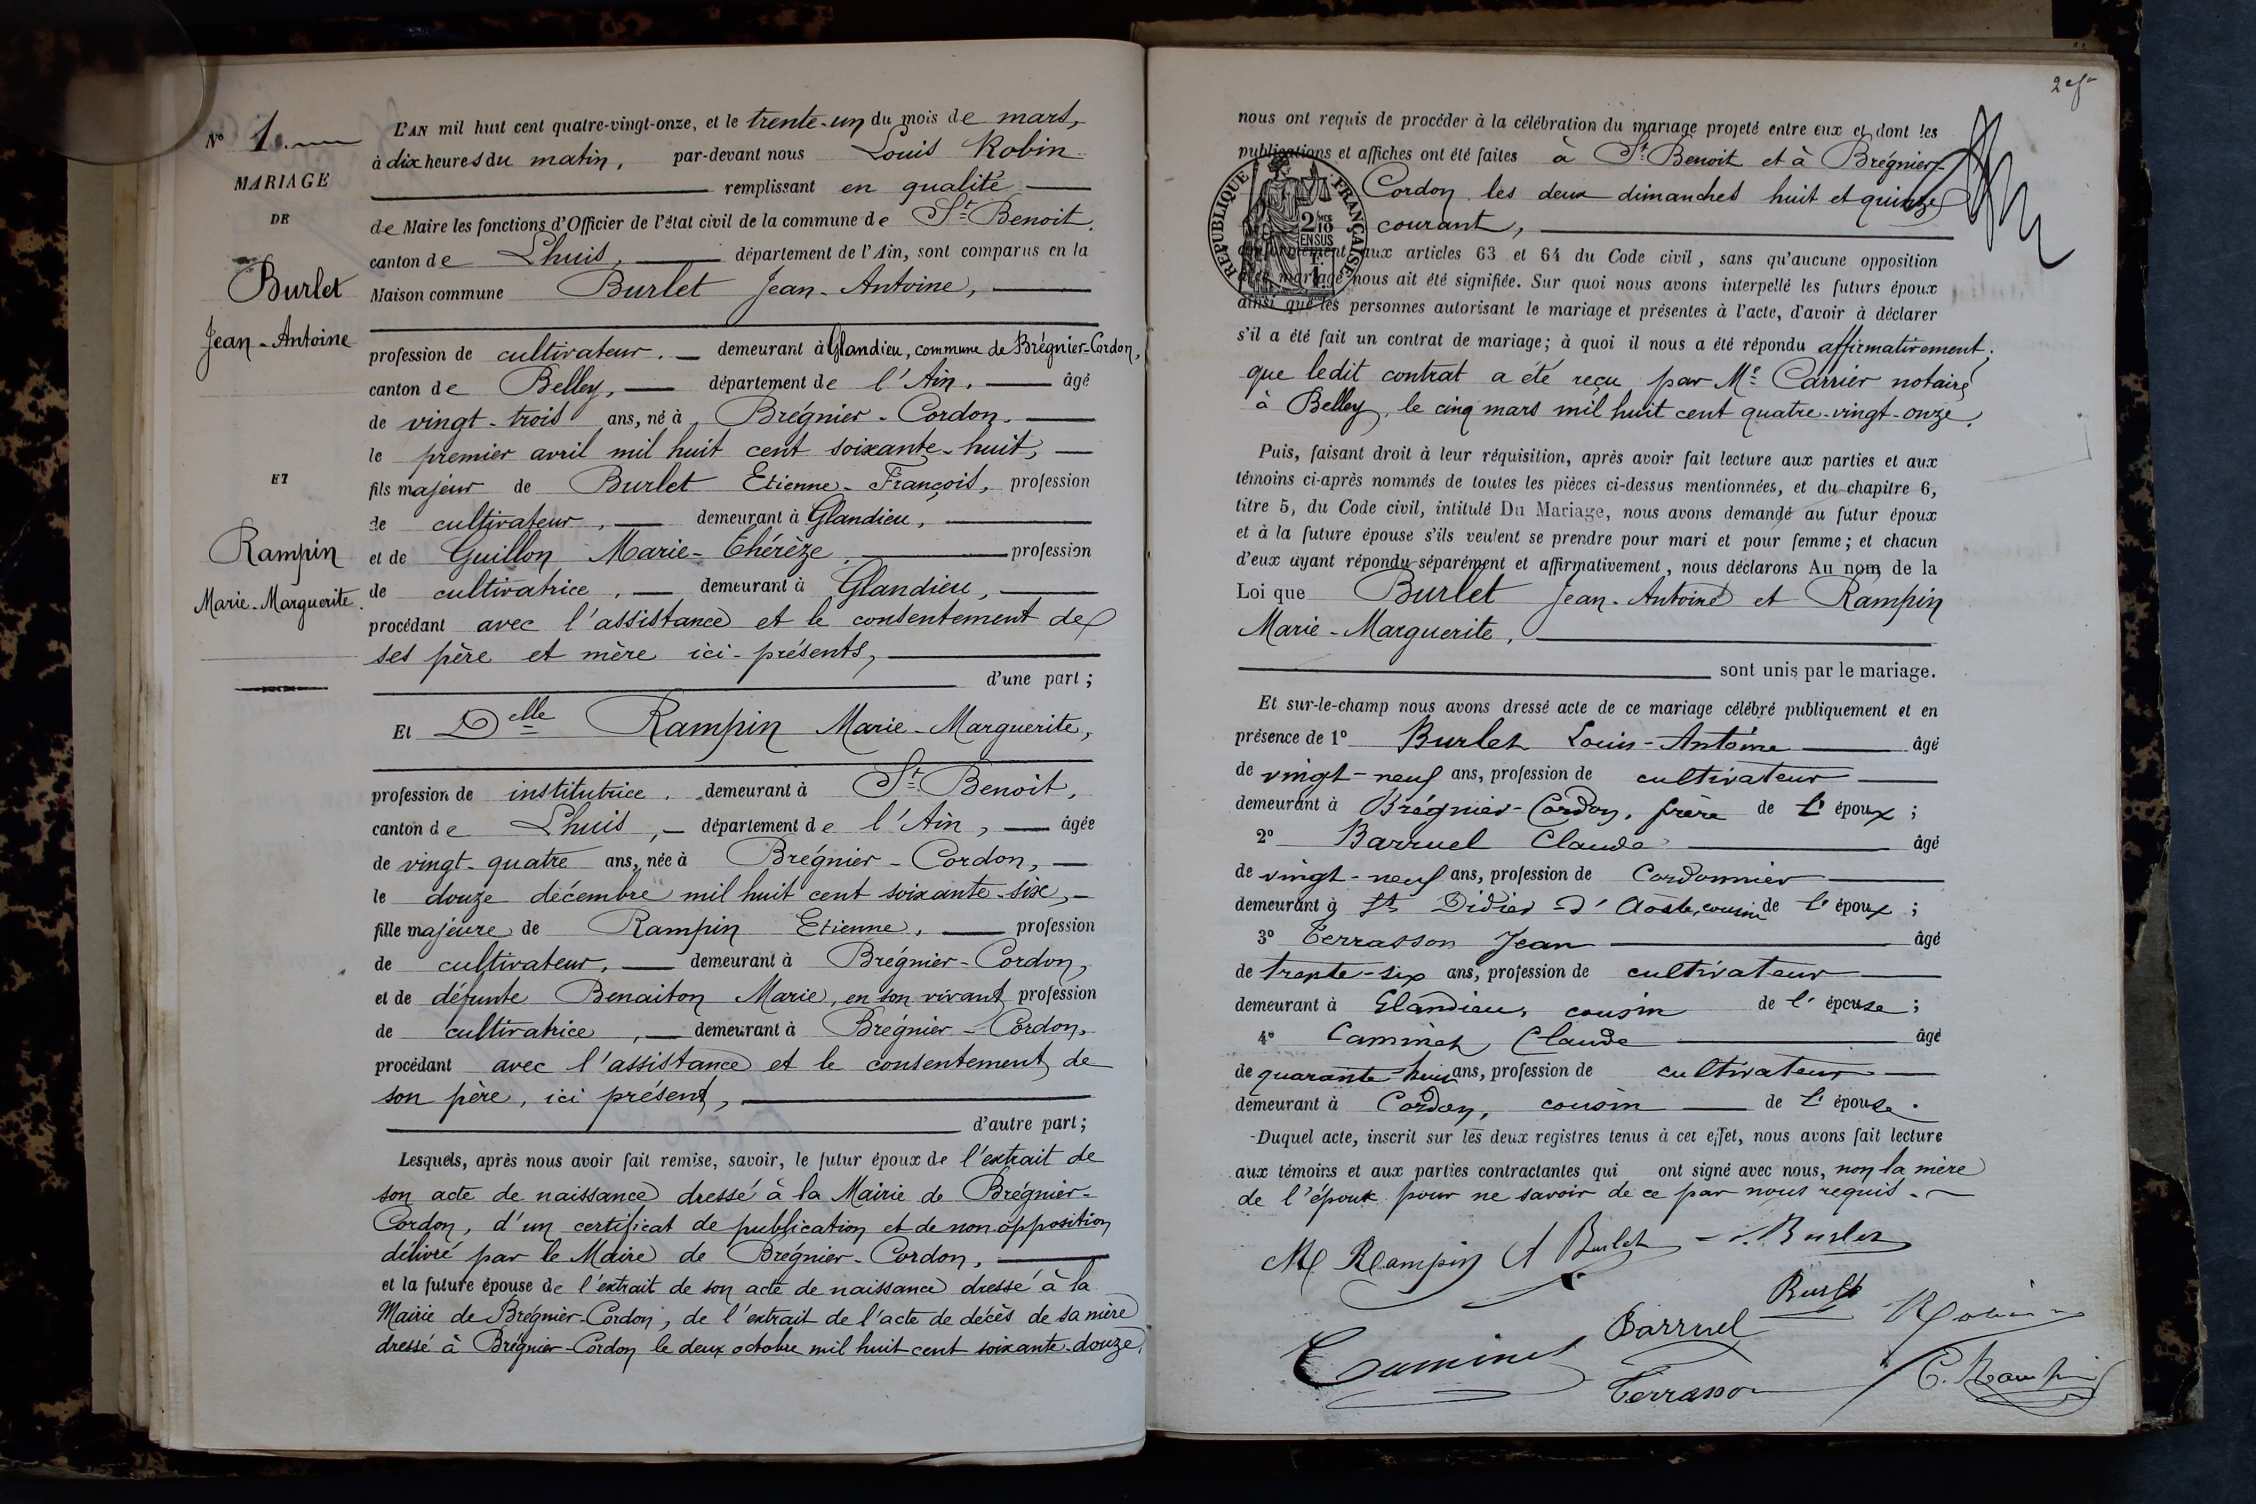 N° 1.
MARIAGE
DE
Burlet
Jean-Antoine
ET
Rampin
Marie-Marguerite.
L'AN mil huit cent quatre-vingt-onze, et le trente-un du mois de mars,
à dix heures du matin, par-devant nous Louis Robin
remplissant en qualité
de Maire les fonctions d'Officier de l'état civil de la commune de St Benoit.
canton de Lhuis, département de l'Ain, sont comparus en la
Maison commune Burlet Jean-Antoine,
profession de cultivateur. demeurant à Glandieu, commune de Brégnier-Cordon,
canton de Belley, département de l'Ain. âgé
de vingt-trois ans, né à Brégnier-Cordon.
le premier avril mil huit cent soixante-huit,
fils majeur de Burlet Etienne-François, profession
de cultivateur, demeurant à Glandieu,
et de Guillon Marie-Thérèze, profession
de cultivatrice, demeurant à Glandieu,
procédant avec l'assistance et le consentement de
ses père et mère ici-présents,
d'une part;
Et Delle Rampin Marie-Marguerite,
profession de institutrice. demeurant à St Benoit,
canton de Lhuis, département de l'Ain, âgée
de vingt-quatre ans, née à Brégnier-Cordon,
le douze décembre mil huit cent soixante-six,
fille majeure de Rampin Etienne, profession
de cultivateur, demeurant à Brégnier-Cordon,
et de défunte Benaiton Marie, en son vivant profession
de cultivatrice, demeurant à Brégnier-Cordon,
procédant avec l'assistance et le consentement de
son père, ici présent,
d'autre part;
Lesquels, après nous avoir fait remise, savoir, le futur époux de l'extrait de
son acte de naissance dressé à la Mairie de Brégnier-
Cordon, d'un certificat de publication et de non opposition
délivré par le Maire de Brégnier-Cordon,
et la future épouse de l'extrait de son acte de naissance dressé à la
Mairie de Brégnier-Cordon, de l'extrait de l'acte de décès de sa mère
dressé à Brégnier-Cordon le deux octobre mil huit cent soixante-douze,
nous ont requis de procéder à la célébration du mariage projeté entre eux et dont les
publications et affiches ont été faites à St Benoit et à Brégnier-
Cordon les deux dimanches huit et quinze
courant,
RÉPUBLIQUE FRANÇAISE
2/10
EN SUS
conformément aux articles 63 et 64 du Code civil, sans qu'aucune opposition
mariage nous ait été signifiée. Sur quoi nous avons interpellé les futurs époux
ainsi que les personnes autorisant le mariage et présentes à l'acte, d'avoir à déclarer
s'il a été fait un contrat de mariage; à quoi il nous a été répondu affirmativement;
que ledit contrat a été reçu par Me Carrier notaire
à Belley, le cinq mars mil huit cent quatre-vingt-onze.
Puis, faisant droit à leur réquisition, après avoir fait lecture aux parties et aux
témoins ci-après nommés de toutes les pièces ci-dessus mentionnées, et du chapitre 6,
titre 5, du Code civil, intitulé Du Mariage, nous avons demandé au futur époux
et à la future épouse s'ils veulent se prendre pour mari et pour femme; et chacun
d'eux ayant répondu séparément et affirmativement, nous déclarons Au nom de la
Loi que Burlet Jean-Antoine et Rampin
Marie-Marguerite,
sont unis par le mariage.
Et sur-le-champ nous avons dressé acte de ce mariage célébré publiquement et en
présence de 1° Burlet Louis-Antoine âgé
de vingt-neuf ans, profession de cultivateur
demeurant à Brégnier-Cordon, frère de l'époux;
2° Barruel Claude âgé
de vingt-neuf ans, profession de Cordonnier
demeurant à St Didier-d'Aoste, cousin de l'époux;
3° Terrasson Jean âgé
de trente-six ans, profession de cultivateur
demeurant à Glandieu, cousin de l'épouse;
4° Caminet Claude âgé
de quarante-huit ans, profession de cultivateur
demeurant à Cordon, cousin de l'épouse.
Duquel acte, inscrit sur les deux registres tenus à cet effet, nous avons fait lecture
aux témoins et aux parties contractantes qui ont signé avec nous, non la mère
de l'époux pour ne savoir de ce par nous requis.
M Rampin A Burlet Burlet
Burlet
Barruel Robin
Caminet Terrasson E. Rampin